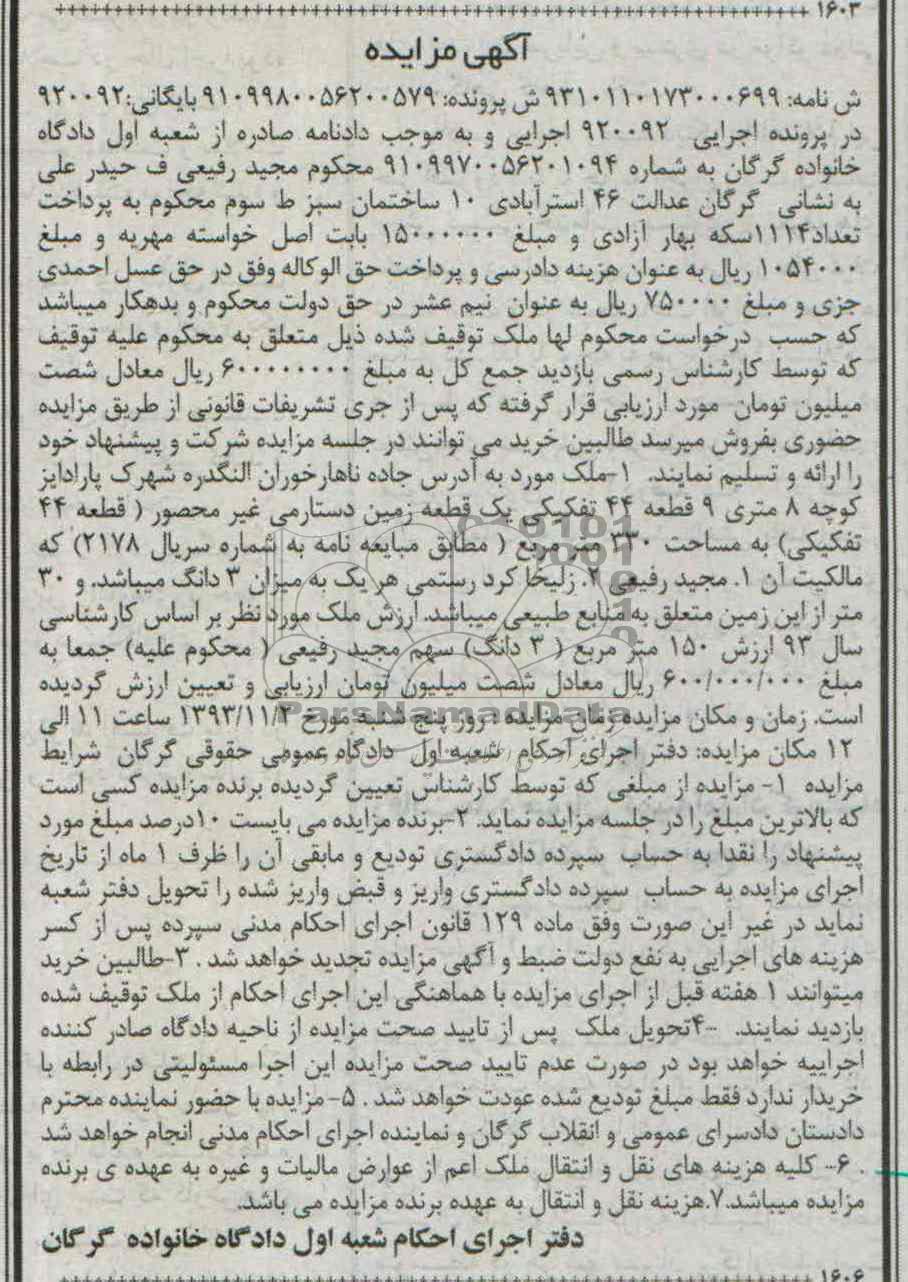 ۱۶۰۳
آگهی مزایده
ش نامه: ۹۳۱۰۱۱۰۱۷۳۰۰۰۶۹۹ ش پرونده: ۹۱۰۹۹۸۰۰۵۶۲۰۰۵۷۹ بایگانی:۹۲۰۰۹۲
در پرونده اجرایی ۹۲۰۰۹۲ اجرایی و به موجب دادنامه صادره از شعبه اول دادگاه
خانواده گرگان به شماره ۹۱۰۹۹۷۰۰۵۶۲۰۱۰۹۴ محکوم مجید رفیعی ف حیدر علی
به نشانی گرگان عدالت ۴۶ استرآبادی ۱۰ ساختمان سبز ط سوم محکوم به پرداخت
تعداد۱۱۱۴سکه بهار آزادی و مبلغ ۱۵۰۰۰۰۰۰ بابت اصل خواسته مهریه و مبلغ
۱۰۵۴۰۰۰ ریال به عنوان هزینه دادرسی و پرداخت حق الوکاله وفق در حق عسل احمدی
جزی و مبلغ ۷۵۰۰۰۰ ریال به عنوان نیم عشر در حق دولت محکوم و بدهکار میباشد
که حسب درخواست محکوم لها ملک توقیف شده ذیل متعلق به محکوم علیه توقیف
که توسط کارشناس رسمی بازدید جمع کل به مبلغ ۶۰۰۰۰۰۰۰۰ ریال معادل شصت
میلیون تومان مورد ارزیابی قرار گرفته که پس از جری تشریفات قانونی از طریق مزایده
حضوری بفروش میرسد طالبین خرید می توانند در جلسه مزایده شرکت و پیشنهاد خود
را ارائه و تسلیم نمایند. ۱-ملک مورد به آدرس جاده ناهارخوران النگدره شهرک پارادایز
کوچه ۸ متری ۹ قطعه ۴۴ تفکیکی یک قطعه زمین دستارمی غیر محصور ( قطعه ۴۴
تفکیکی) به مساحت ۳۳۰ متر مربع ( مطابق مبایعه نامه به شماره سریال ۲۱۷۸) که
مالکیت آن ۱. مجید رفیعی ۲. زلیخا کرد رستمی هر یک به میزان ۳ دانگ میباشد. و ۳۰
متر از این زمین متعلق به منابع طبیعی میباشد. ارزش ملک مورد نظر بر اساس کارشناسی
سال ۹۳ ارزش ۱۵۰ متر مربع ( ۳ دانگ) سهم مجید رفیعی ( محکوم علیه) جمعا به
مبلغ ۶۰۰/۰۰۰/۰۰۰ ریال معادل شصت میلیون تومان ارزیابی و تعیین ارزش گردیده
ParsNamadData
است. زمان و مکان مزایده زمان مزایده : روز پنج شنبه مورخ ۱۳۹۳/۱۱/۲ ساعت ۱۱ الی
۱۲ مکان مزایده: دفتر اجرای احکام شعبه اول دادگاه عمومی حقوقی گرگان شرایط
مزایده ۱- مزایده از مبلغی که توسط کارشناس تعیین گردیده برنده مزایده کسی است
که بالاترین مبلغ را در جلسه مزایده نماید. ۲-برنده مزایده می بایست ۱۰درصد مبلغ مورد
پیشنهاد را نقدا به حساب سپرده دادگستری تودیع و مابقی آن را ظرف ۱ ماه از تاریخ
اجرای مزایده به حساب سپرده دادگستری واریز و قبض واریز شده را تحویل دفتر شعبه
نماید در غیر این صورت وفق ماده ۱۲۹ قانون اجرای احکام مدنی سپرده پس از کسر
هزینه های اجرایی به نفع دولت ضبط و آگهی مزایده تجدید خواهد شد . ۳-طالبین خرید
میتوانند ۱ هفته قبل از اجرای مزایده با هماهنگی این اجرای احکام از ملک توقیف شده
بازدید نمایند. -۴تحویل ملک پس از تایید صحت مزایده از ناحیه دادگاه صادر کننده
اجراییه خواهد بود در صورت عدم تایید صحت مزایده این اجرا مسئولیتی در رابطه با
خریدار ندارد فقط مبلغ تودیع شده عودت خواهد شد . ۵-مزایده با حضور نماینده محترم
دادستان دادسرای عمومی و انقلاب گرگان و نماینده اجرای احکام مدنی انجام خواهد شد
. ۶- کلیه هزینه های نقل و انتقال ملک اعم از عوارض مالیات و غیره به عهده ی برنده
مزایده میباشد.۷.هزینه نقل و انتقال به عهده برنده مزایده می باشد.
دفتر اجرای احکام شعبه اول دادگاه خانواده گرگان
۱۶۰۶